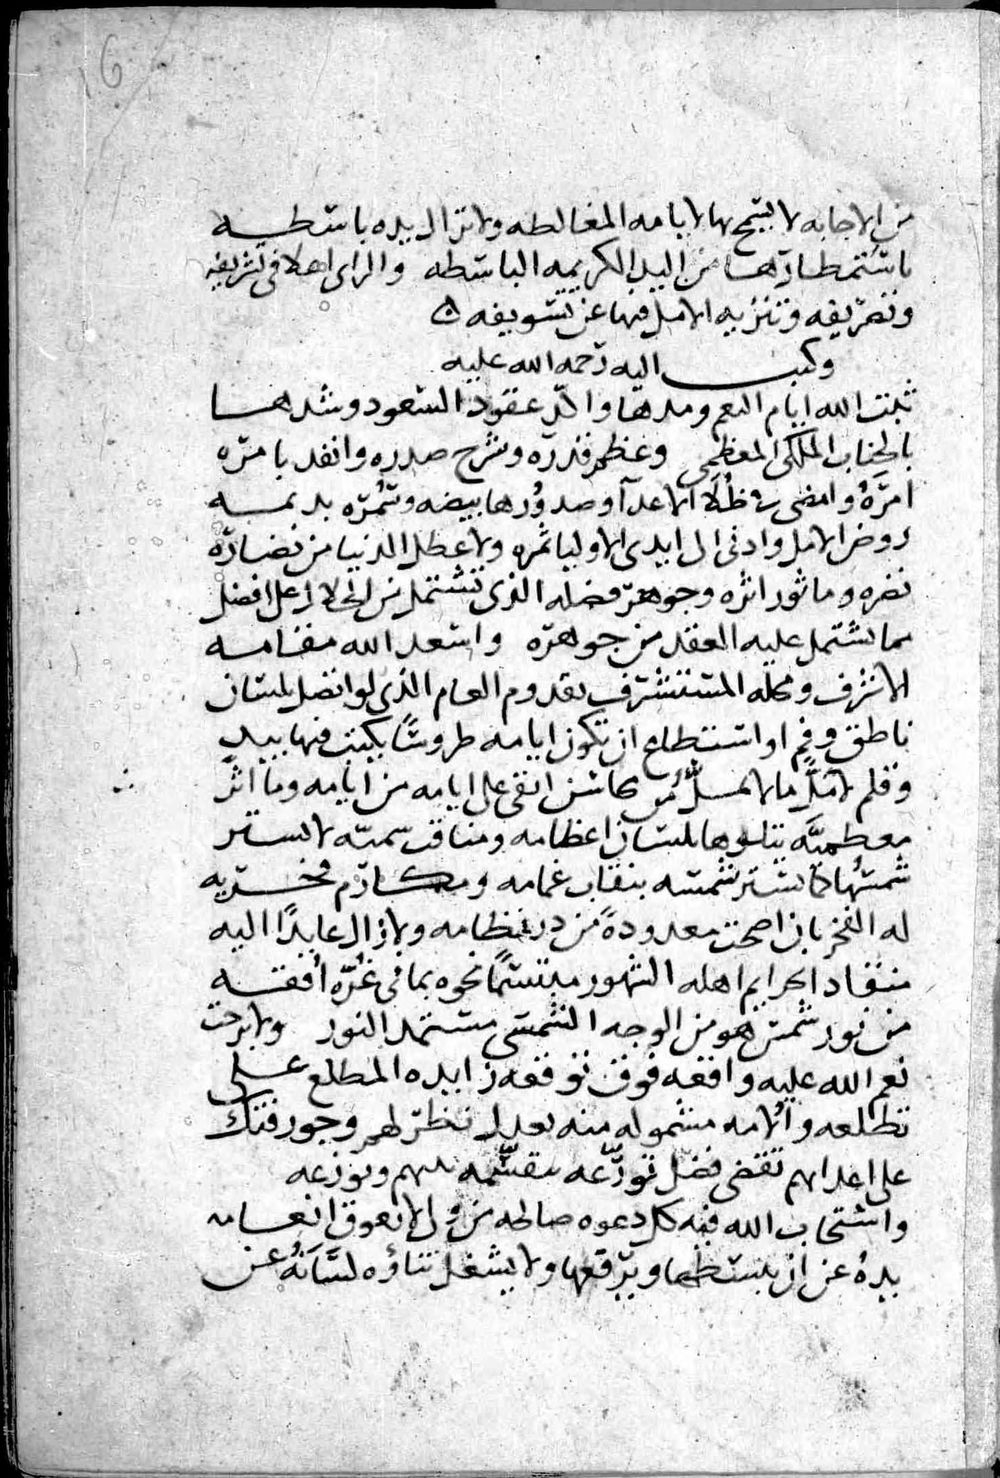 6
من الاجابه لا يتيح بها لايامه المغالطه ولا تزال يده باسطه
باستمطارها من اليد الكريمه الباسطه والراى اعلا فى تشريفه
وتصريفه وتنزيه الامل فيها عن تسويفه ه
وكتب اليه رحمه الله عليه
ثبت الله ايام النعم ومدها واكد عقود السعود وشدها
بالجناب الملكى المعظمى وعظم قدره وشرح صدره وانفد بامره
امره وامضى فى طلا الاعدآ وصدورها بيضه وسمره بديمه
روض الامل وادنى الى ايدى الاوليا ثمره ولا عطل الدنيا من نضاره
نضره وماثور اثره وجوهر فضله الذى تشتمل من الخلال على افضل
مما يشتمل عليه العقد من جوهره واسعد الله مقامه
الاشرف ومحله المستشرف بقدوم العام الذى لو اتصل بلسان
ناطق وفم او استطاع ان تكون ايامه طروسًا يكتب فيها بيد
وقلم لامل ما لا يمل من محاسن ابقى على ايامه من ايامه وماثر
معظميه يتلوها بلسان اعظامه ومناقب سميه لا تستتر
شمسها كما تستتر شمسه بنقاب غمامه ومكارم فخريه
له الفخر بان اصحت معدودة من در نظامه ولا زال عايدًا اليه
منقاد الحرايم اهله الشهور مبتسمًا نحوه بما فى غره افقه
من نور شمس هو من الوجه الشمسى مستمد النور ولا برحت
نعم الله عليه وافقه فوق توقفه زايده المطلع على
تطلعه والامه مشموله منه بعدل نظر لهم وجور فتك
على اعدايهم تقضى فضل تورعه بقسمه بينهم وتوزعه
واستجاب الله فيه كل دعوه صالحه من ولى لا تعوق انعامه
يده عن ان يبسطها ويرفعها ولا يشغل ثناؤه لسانه عن